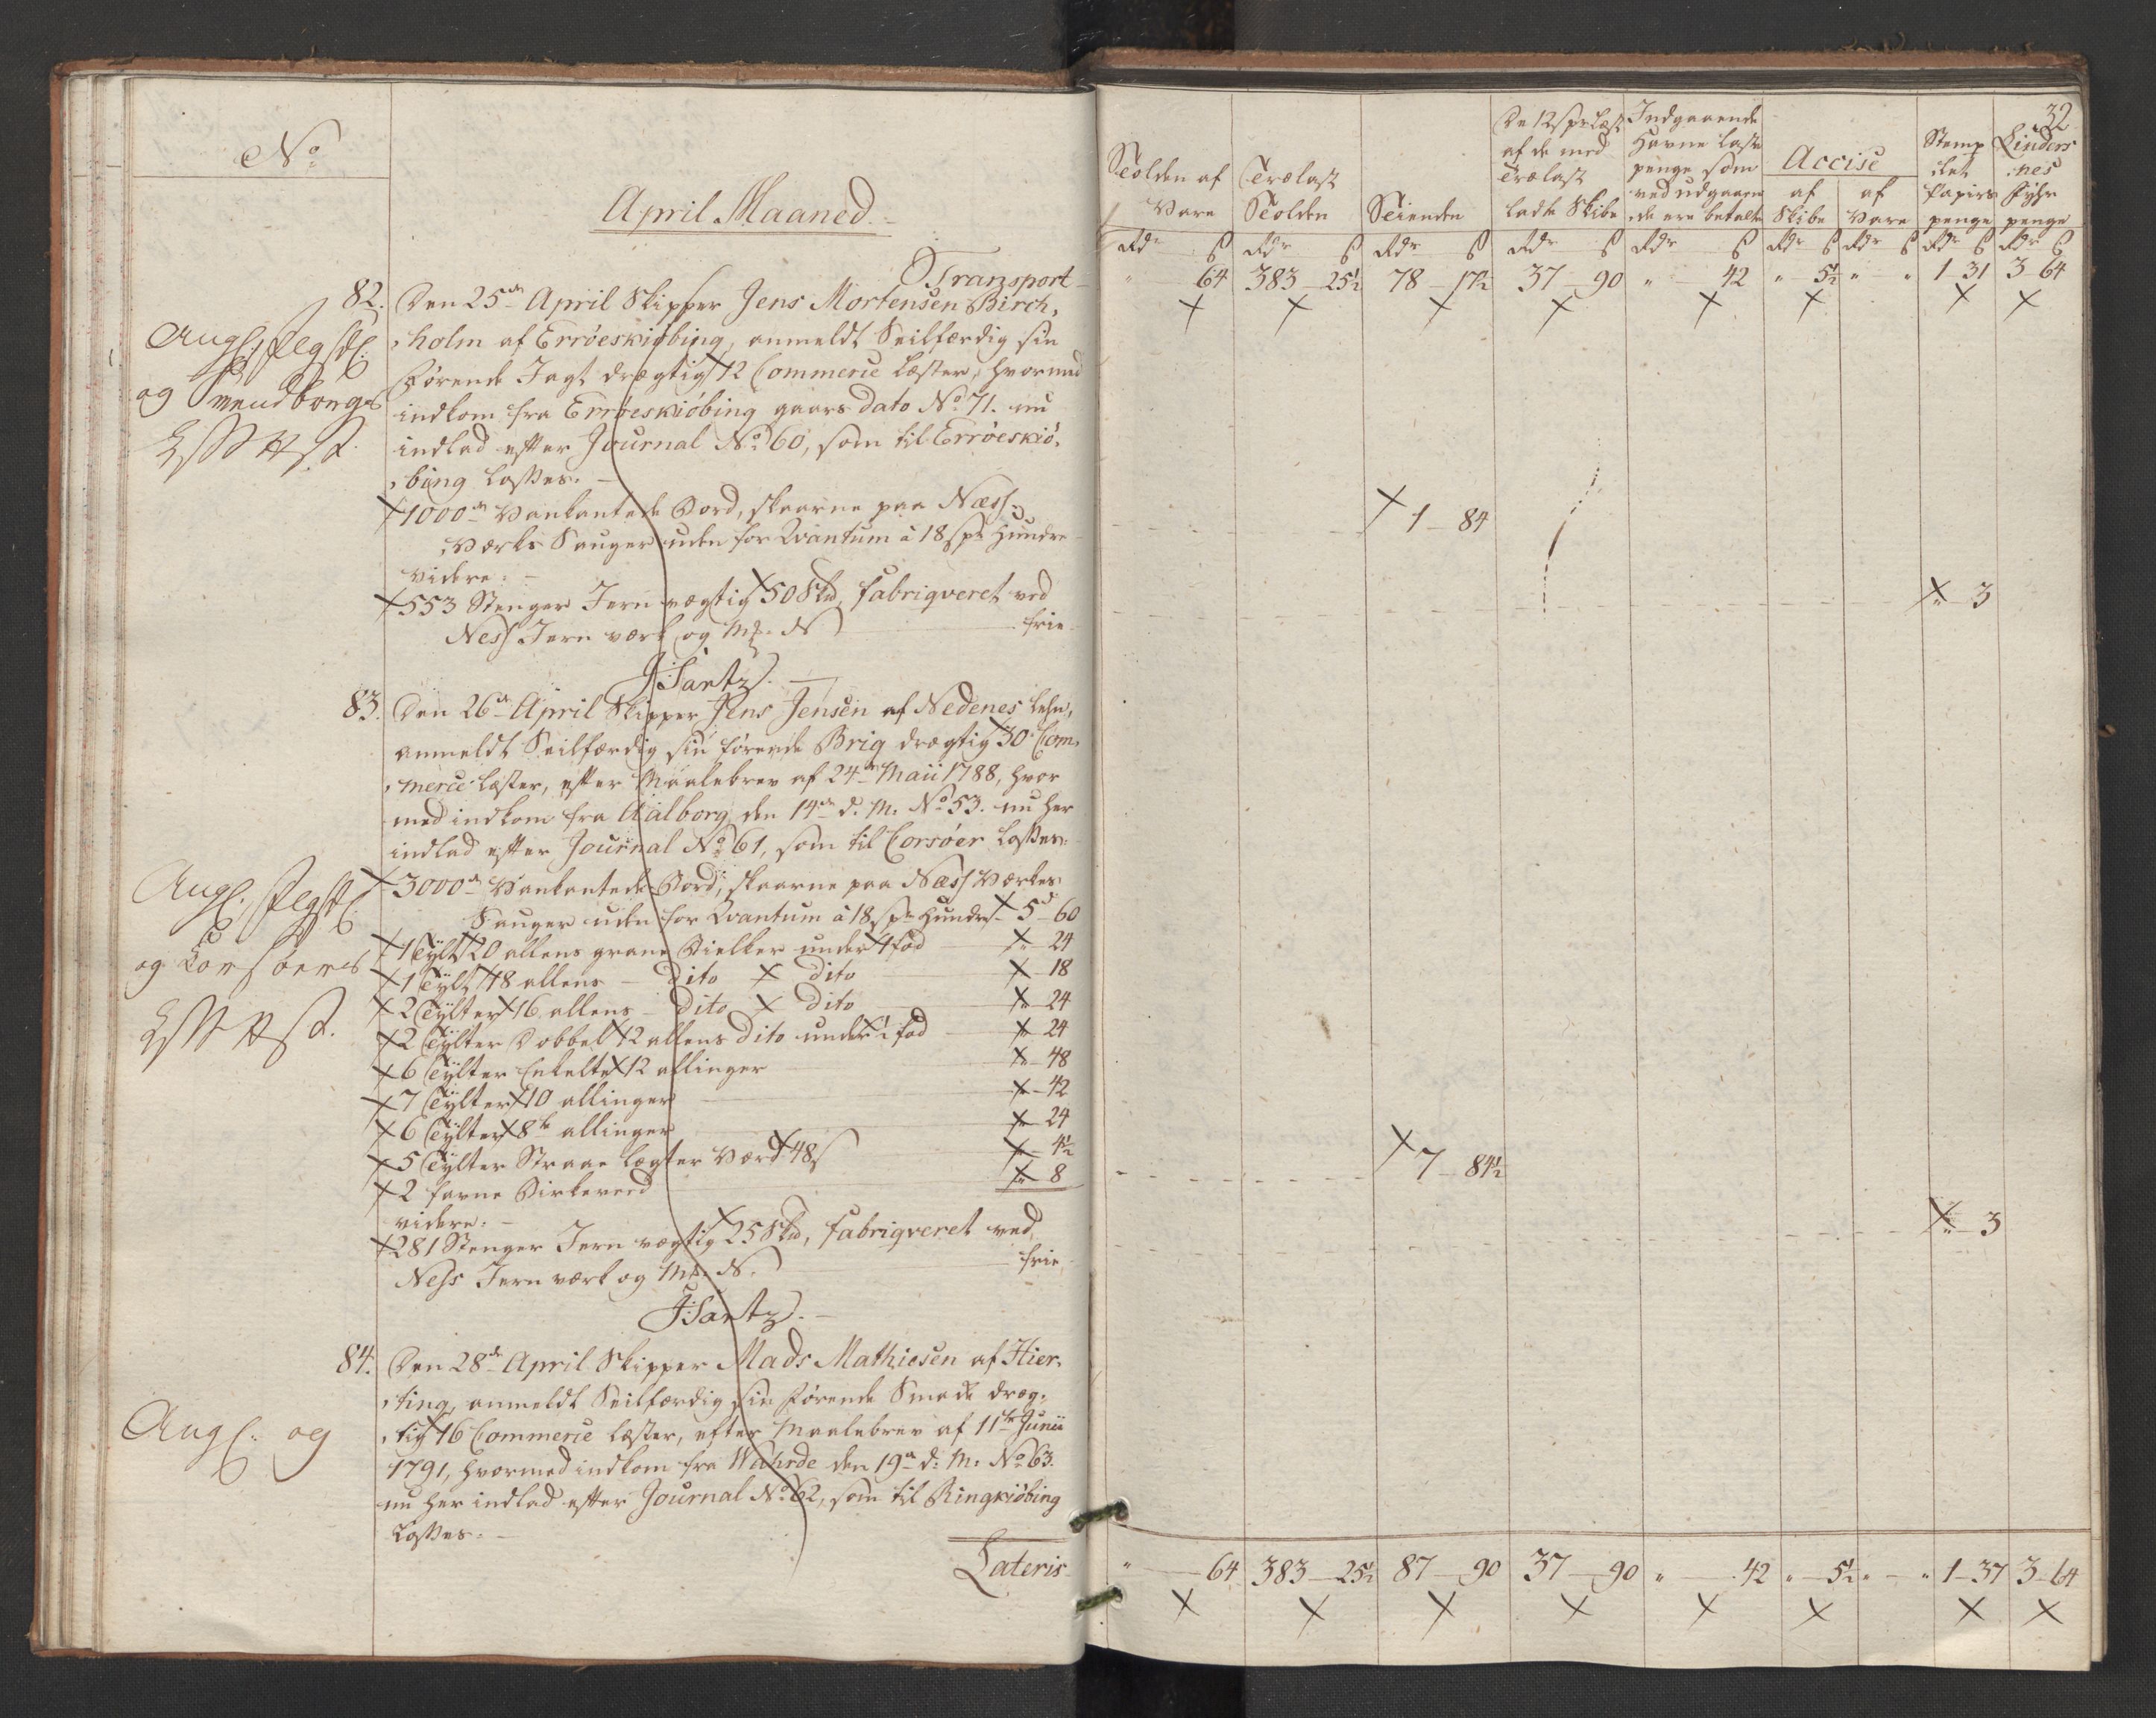 No
April Maaned.
Transport
82. Den 25de April Skipper Jens Mortensen Birch,
holm af Erröeskiøbing, anmeldt Seilfærdig sin
førende Jagt drægtig 12 Commerce Læster, hvormed
indkom fra Erröeskiøbing gaars dato No 71. nu
indlad efter Journal No 60, som til Erröeskiø,
bing losses.
Angl:
og Svendborgs
1000de Vankantede Bord, skaarne paa Næss
Værks Sauger uden for Qvantum à 18 s pr Hundre
videre:
553 Stenger Jern vægtig 50 Skd, fabriqveret ved
Ness Jern værk og M: N frie
83. Den 26de April Skipper Jens Jensen af Nedenes Lehn,
anmeldt Seilfærdig sin førende Brig drægtig 30 Com,
merce Læster, efter Maalebrev af 24de Maii 1788, hvor
med indkom fra Aalborg den 14de d: M: No 53. nu her
indlad efter Journal No 61, som til Corsöer losses:
Angl:
og Corsöers
3000de Vankantede Bord, skaarne paa Næss Værkes
Sauger uden for Qvantum à 18 s pr Hundre 5 - 60
1 Tylt 20 allens grane Bielker under 1 fod " - 24
1 Tylt 18 allens - dito dito " - 18
2 Tylter 16 allens - dito dito " - 24
2 Tylter Dobbelt 12 allens dito under 1 fod " - 24
6 Tylter Enkelte 12 allinger " - 48
7 Tylter 10 allinger " - 42
6 Tylter 8te allinger " - 24
5 Tylter Straae Lægter Værd 48 s " - 4½
2 favne Birkeveed " - 8
videre:
281 Stenger Jern vægtig 25 Skd, fabriqveret ved
Ness Jern værk og M: N. frie
84. Den 28de April Skipper Mads Mathiesen af Hier,
ting, anmeldt Seilfærdig sin førende Smake dræg,
tig 16 Commerce Læster, efter Maalebrev af 11te Junii
1791, hvormed indkom fra Wahrde den 19de d: M: No 63.
nu her indlad efter Journal No 62, som til Ringkiøbing
losses.
Angl: og
Lateris
32
Tolden af Vare
Trælast Tolden
Tienden
De 12 s pr Læst af de med Trælast ladte Skibe
Indgaaende Havne Laste penge som ved udgaaen,de ere betalte
Accise
af Skibe
af Vare
Stemp,let Papirs penge
Linders,nes Fyhr penge
Rdr s Rdr s Rdr s Rdr s Rdr s Rdr s Rdr s Rdr s Rdr s
" 64 383 - 25½ 78 - 17½ 37 - 90 " - 42 " - 5½ " " 1 - 31 3 64
1 - 84
" - 3
7 - 84½
" - 3
" - 64 383 - 25½ 87 - 90 37 - 90 " - 42 " - 5½ " - " 1 - 37 3 - 64